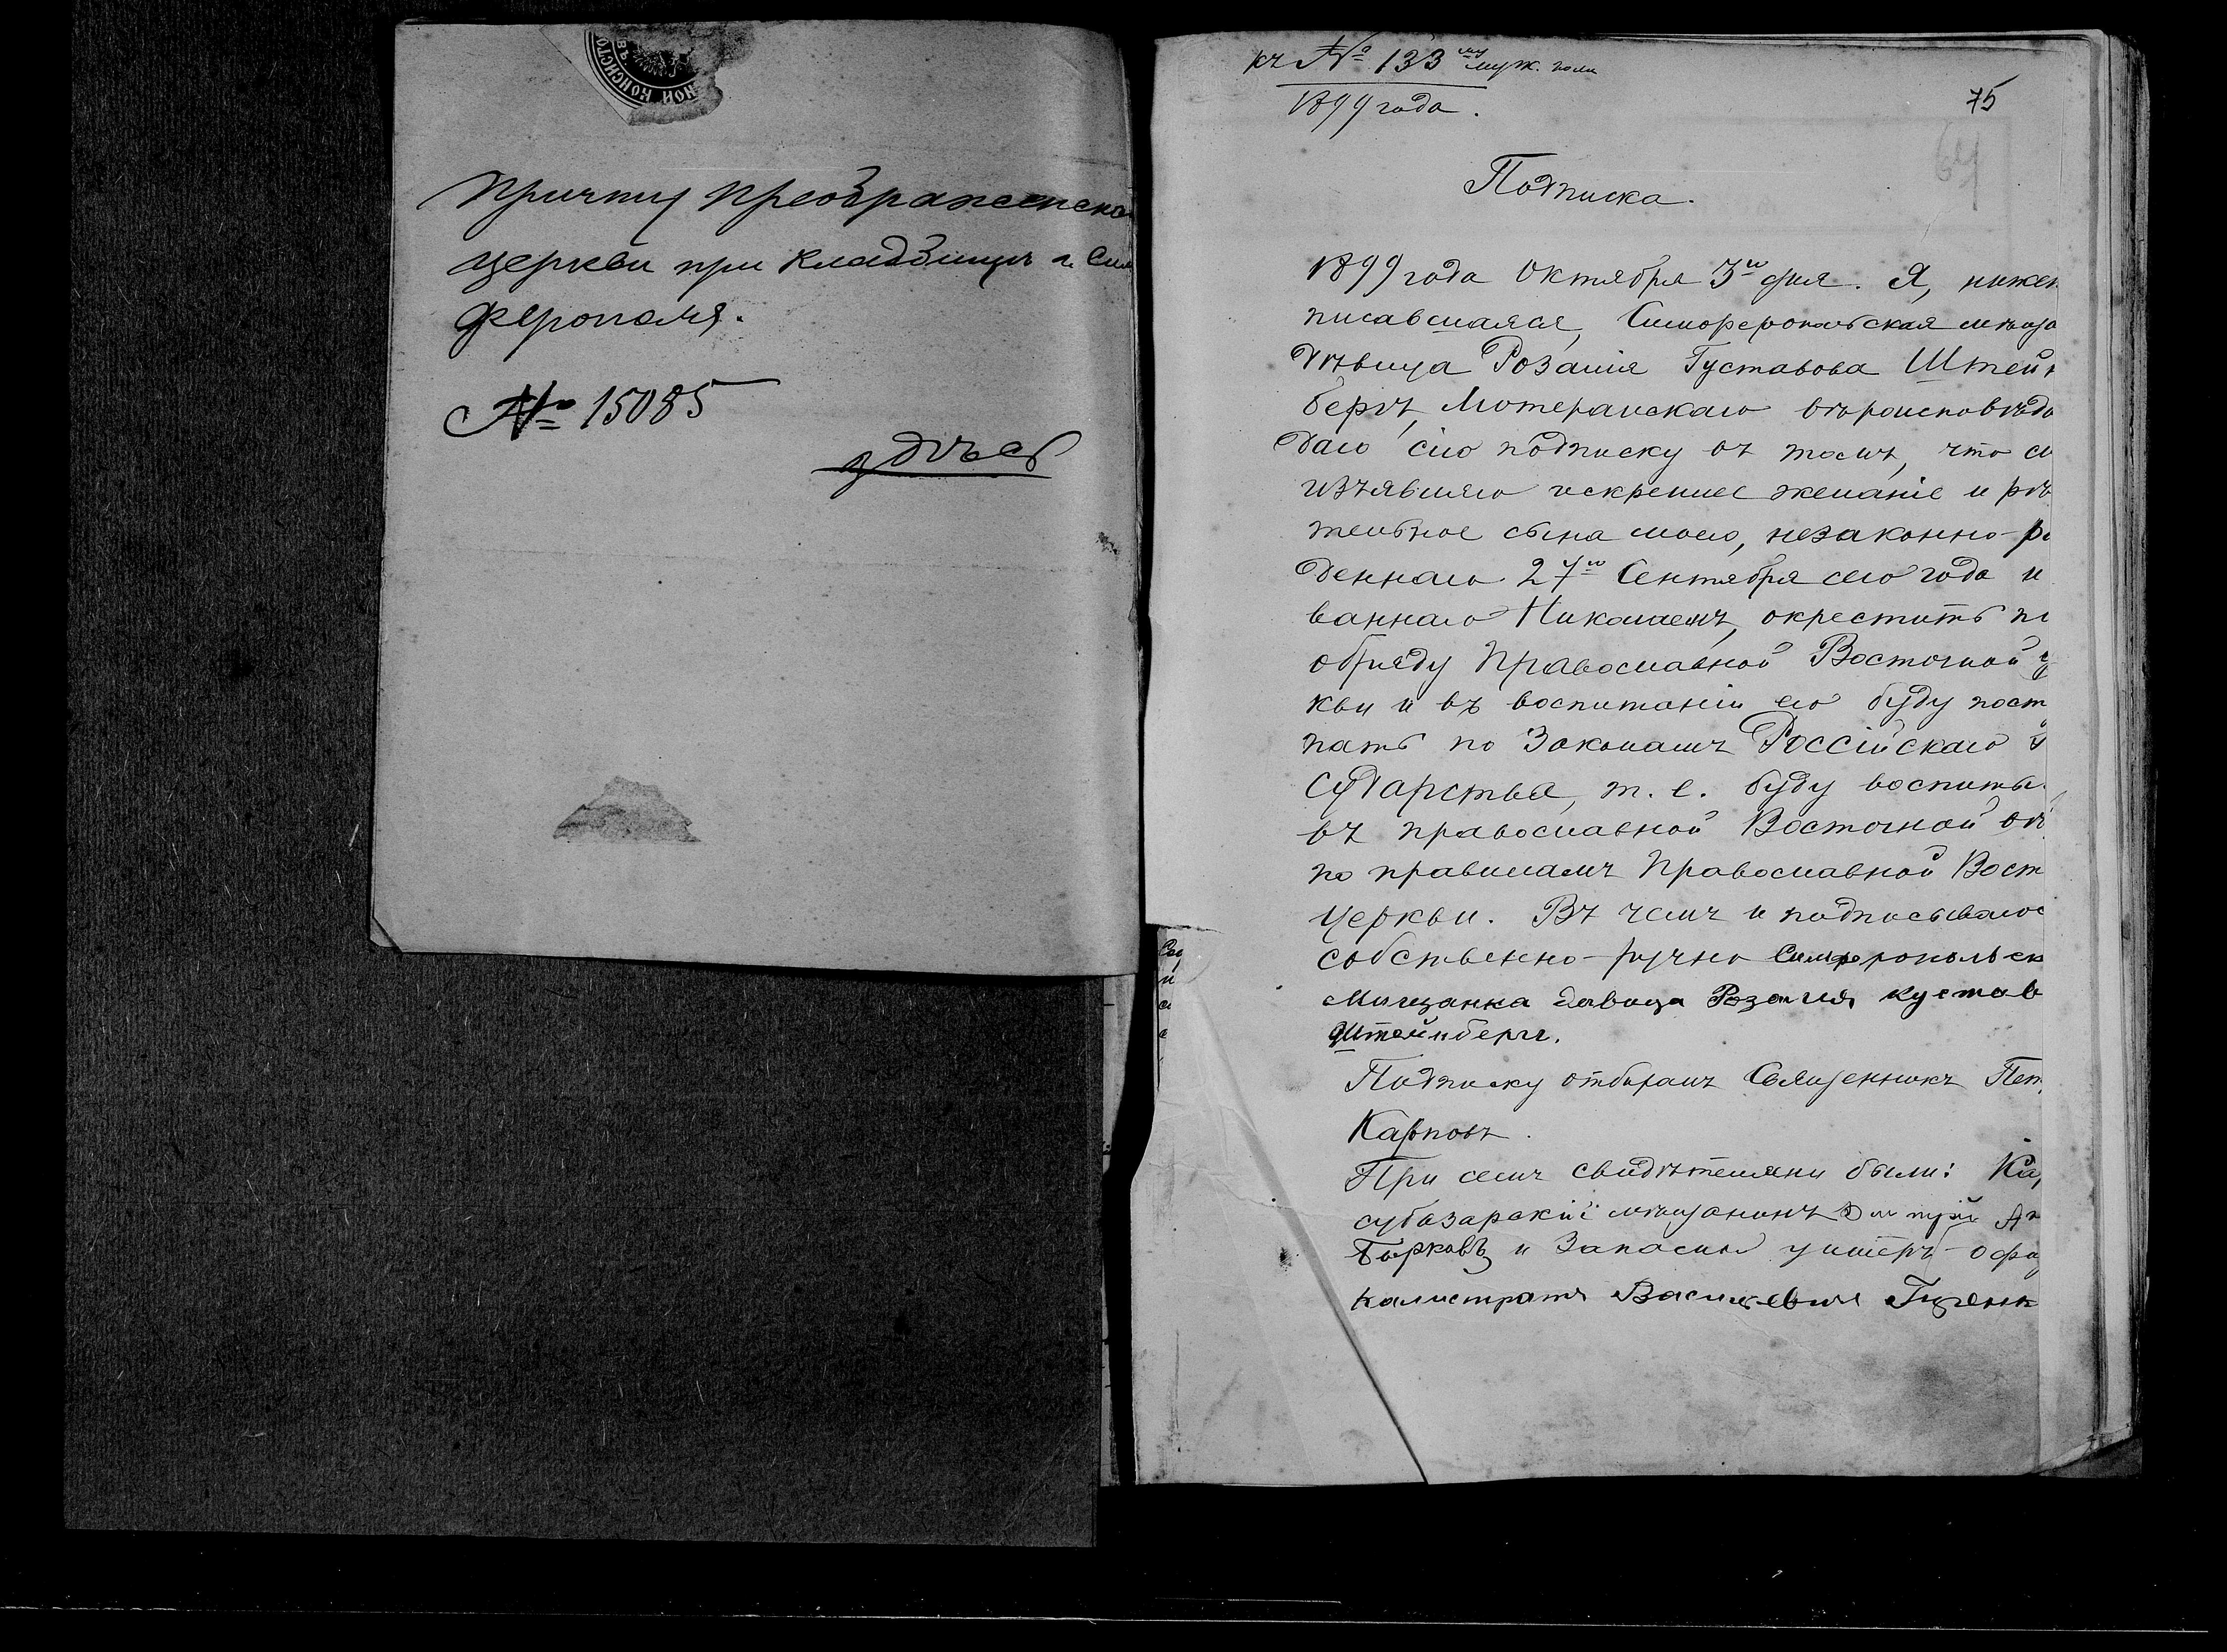 НОЙ КОНСИСТО
Причту Преображенской
церкви при кладбищѣ г. Сим
ферополя.
№ 15085
здѣсь
къ № 133 му муж. пола
1899 года.
75
64
Подписка.
1899 года Октября 3го дня. Я, нижеп
писавшаяся, Симферопольская мѣща
дѣвица Розалія Густавова Штейн
бергъ, Лютеранскаго вѣроисповѣда
даю сію подписку въ томъ, что
изъявляю искреннее желаніе и рѣ
тельное сына моего, незаконно-ро
деннаго 27го Сентября сего года и
ваннаго Николаемъ, окрестить по
обряду Православной Восточной ц
кви и въ воспитаніи его буду пост
пать по Законамъ Россійскаго Г
сударства, т. е. буду воспиты
въ православной Восточной вѣ
по правиламъ Православной Вост
Церкви. Въ чемъ и подписываюс
собственно-ручно Симферопольск
Мищанка давица Розалия Кустав
Штейнбергъ.
Подписку отбиралъ Священникъ Пет
Карповъ.
При семъ свидѣтелями были: Ка
субазарскій мѣщанинъ Дмитрій Ан
Бырковъ и Запасный унтеръ-офи
Калистратъ Васильевич